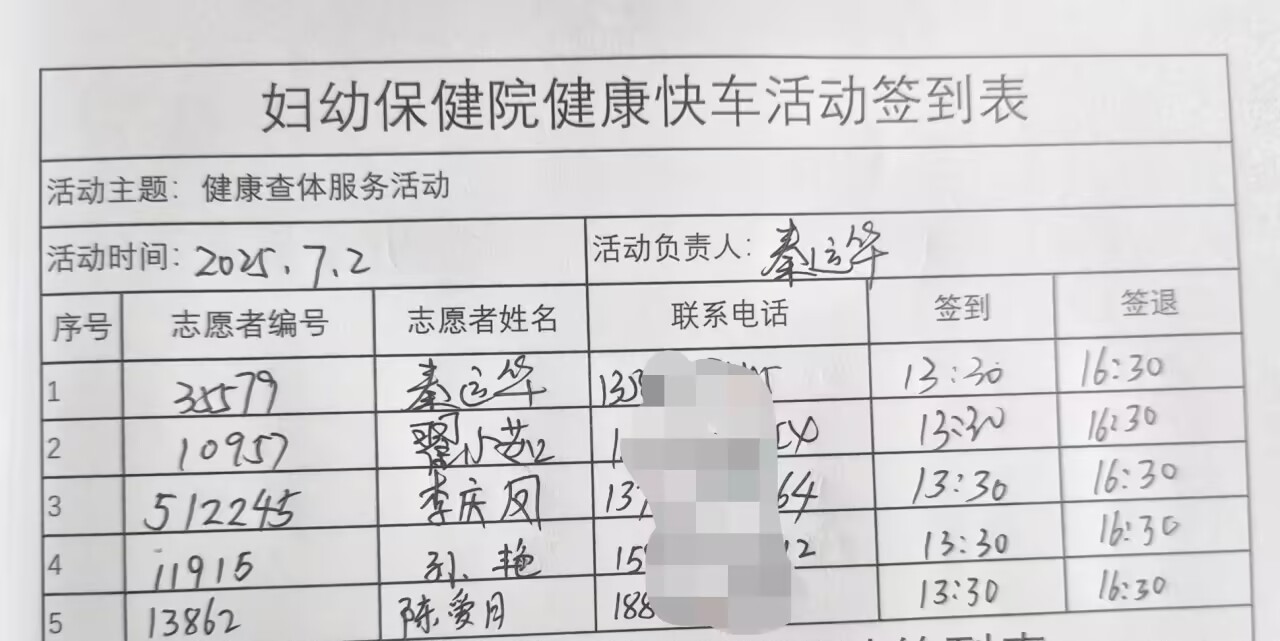 妇幼保健院健康快车活动签到表
活动主题：健康查体服务活动
活动时间：2025.7.2 活动负责人：秦运华
序号 志愿者编号 志愿者姓名 联系电话 签到 签退
1 35579 秦运华 13:30 16:30
2 10957 13:30 16:30
3 512245 李庆凤 13 64 13:30 16:30
4 11915 孙艳 15 12 13:30 16:30
5 13862 陈爱月 188 13:30 16:30